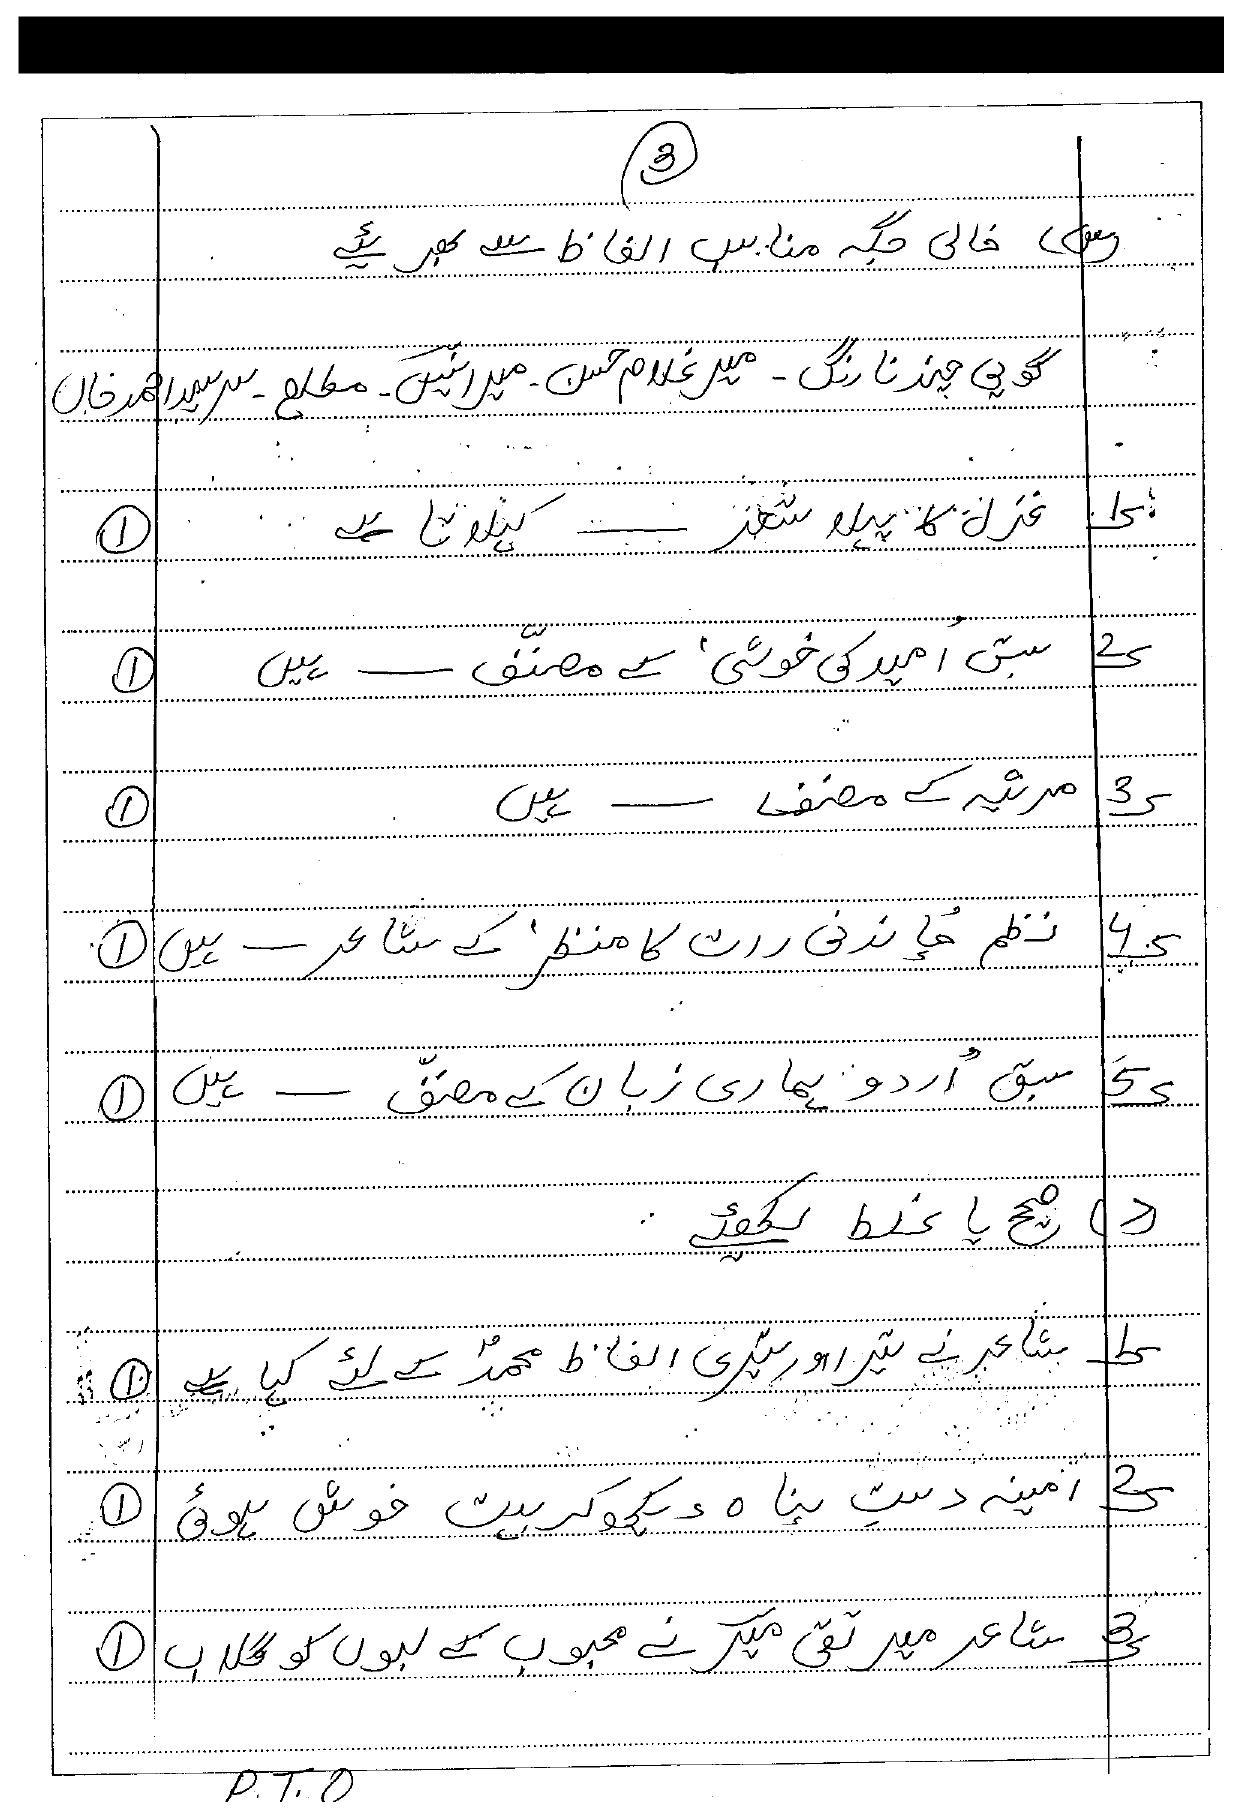 3
س) خالی جگہ مناسب الفاظ سے بھریئے
گوپی چند نارنگ - میر غلام حسن - میر انیس - مطلع - سر سید احمد خاں
1 غزل کا پہلا شعر —— کہلاتا ہے 1
2 سبق 'اُمید کی خوشی' کے مصنّف —— ہیں 1
3 مرثیہ کے مصنف —— ہیں 1
4 نظم 'چاندنی رات کا منظر' کے شاعر —— ہیں 1
5 سبق اُردو ہماری زبان کے مصنّف —— ہیں 1
د) صحیح یا غلط لکھئے
1 شاعر نے تیرا اور تیری الفاظ محمدؐ کے لئے کہا ہے 1
2 امینہ دستِ پناہ دیکھ کر بہت خوش ہوئی 1
3 شاعر میر تقی میر نے محبوب کے لبوں کو گلاب 1
P.T.O